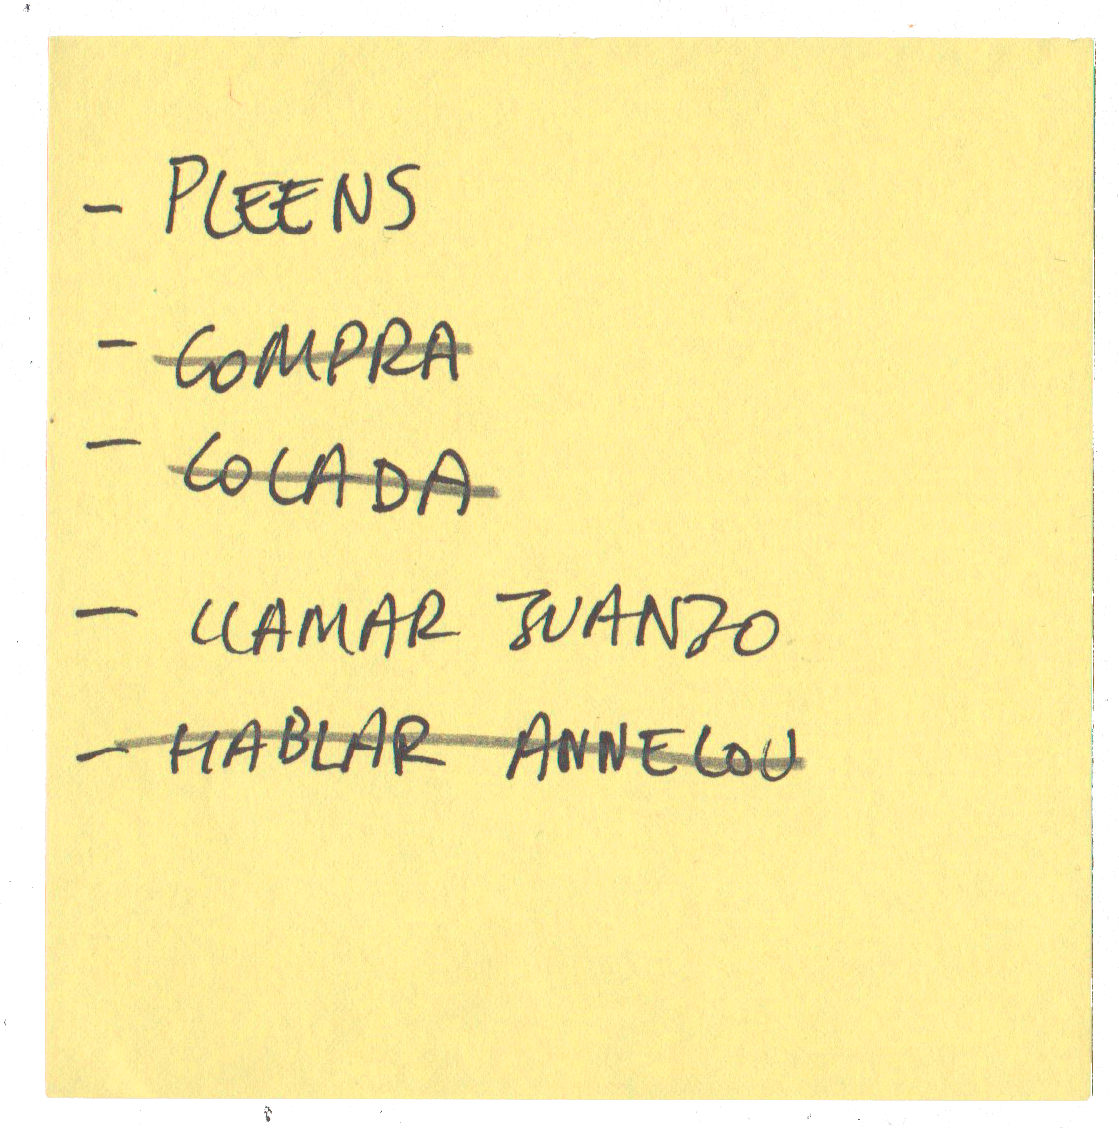 - PLEENS
- COMPRA
- COLADA
- LLAMAR JUANJO
- HABLAR ANNELOU